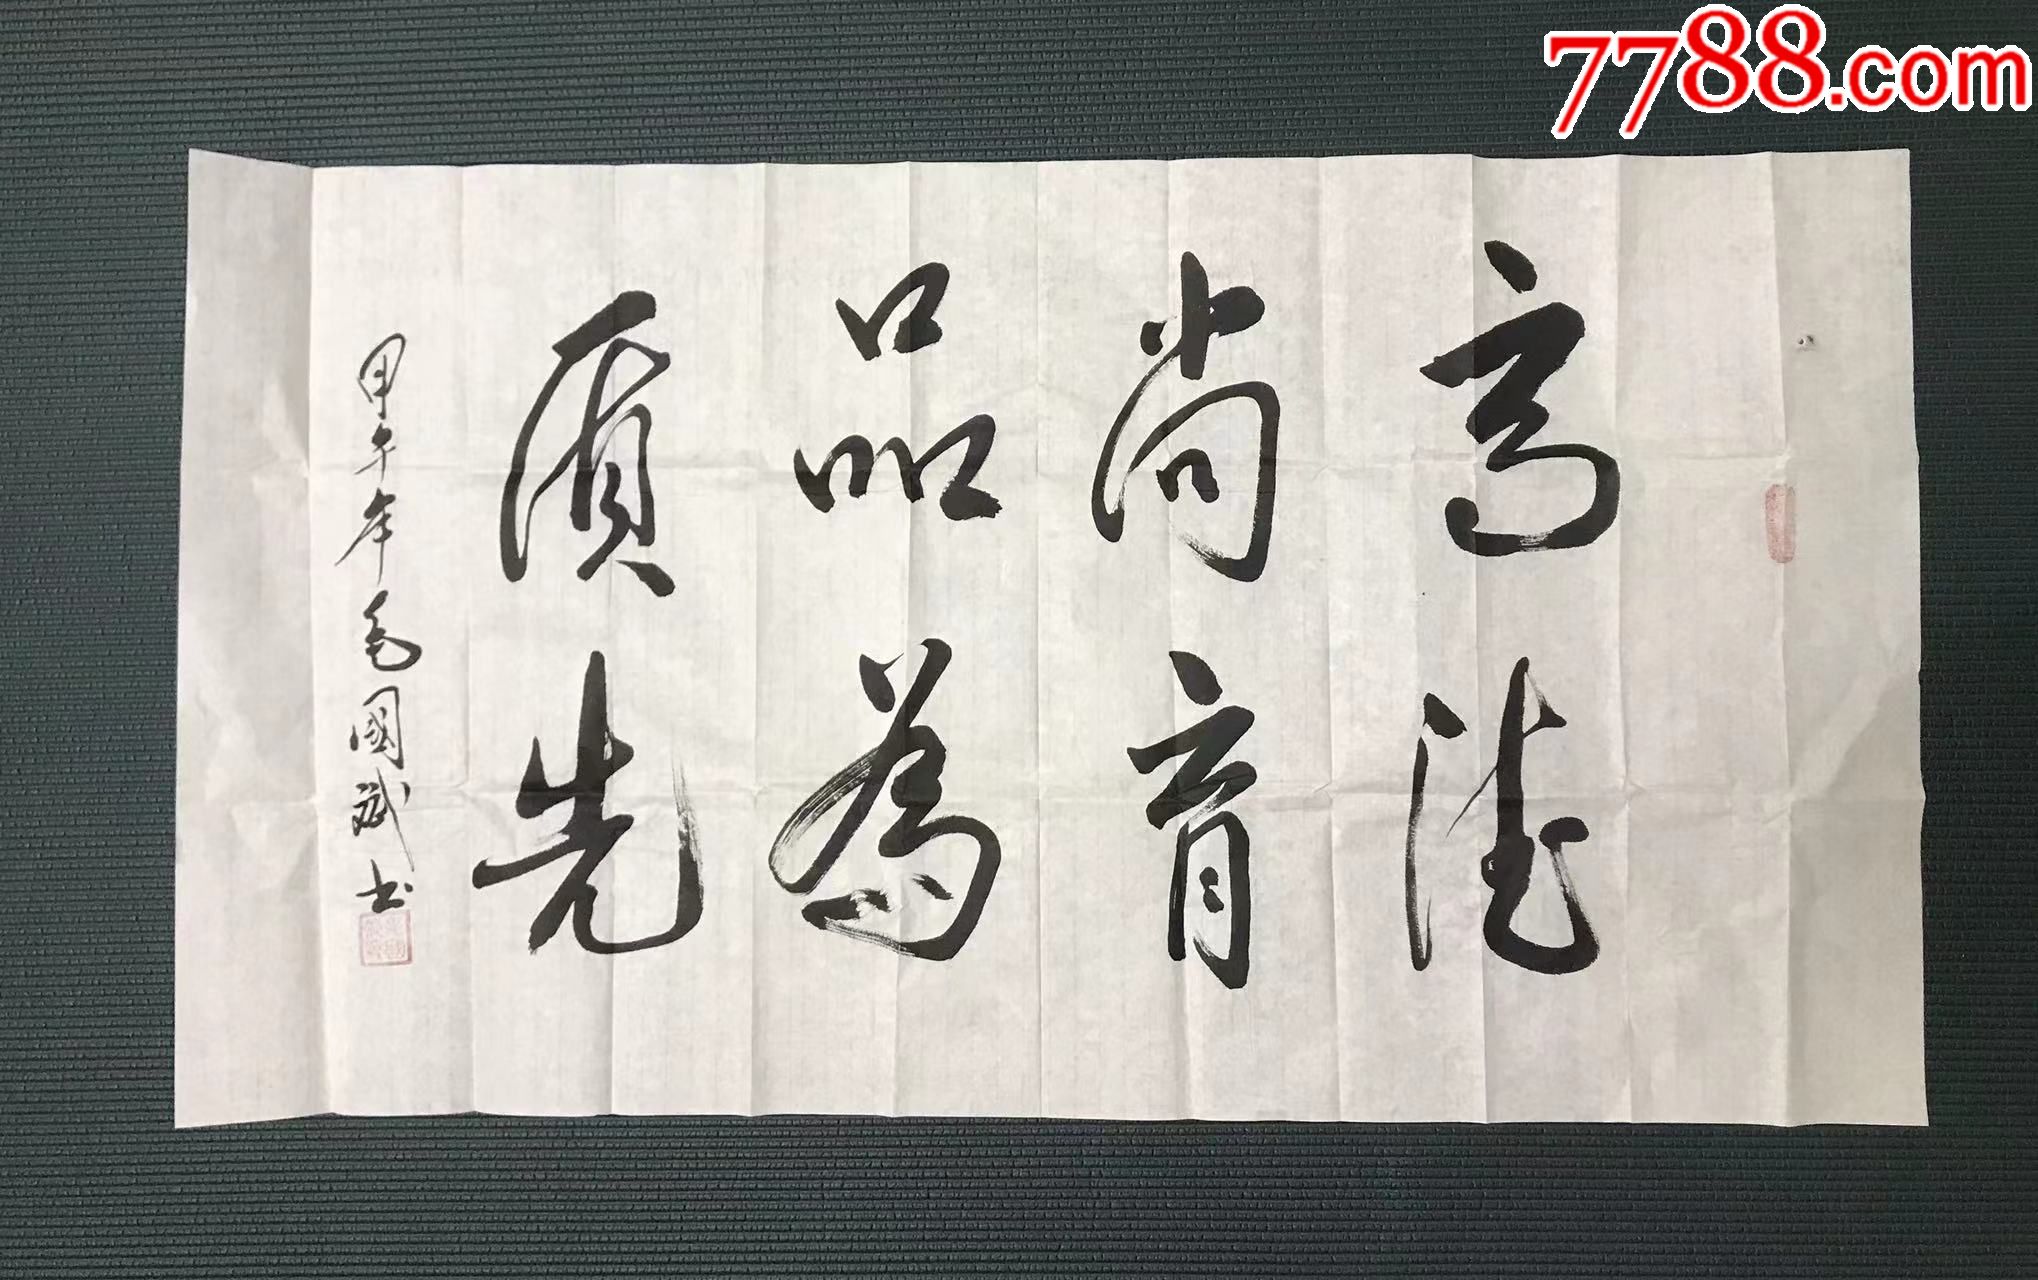 7788.com
高尚品质
德育為先
甲午年毛國斌书